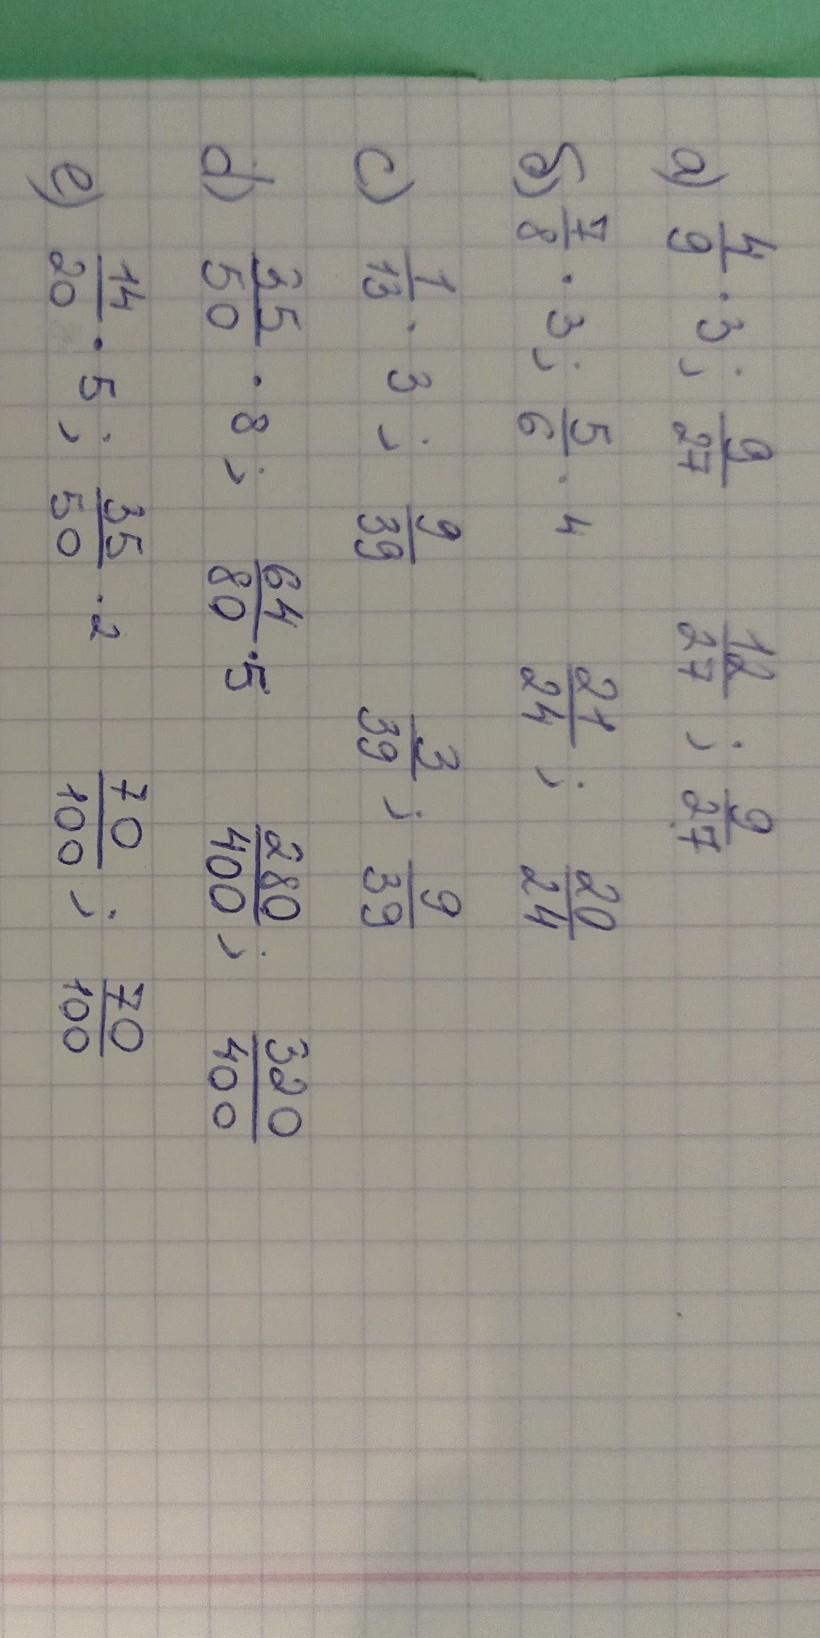 a) 4/9 · 3; 9/27 12/27; 9/27
б) 7/8 · 3; 5/6 · 4 21/24; 20/24
c) 1/13 · 3; 9/39 3/39; 9/39
d) 35/50 · 8; 64/80 · 5 280/400; 320/400
e) 14/20 · 5; 35/50 · 2 70/100; 70/100